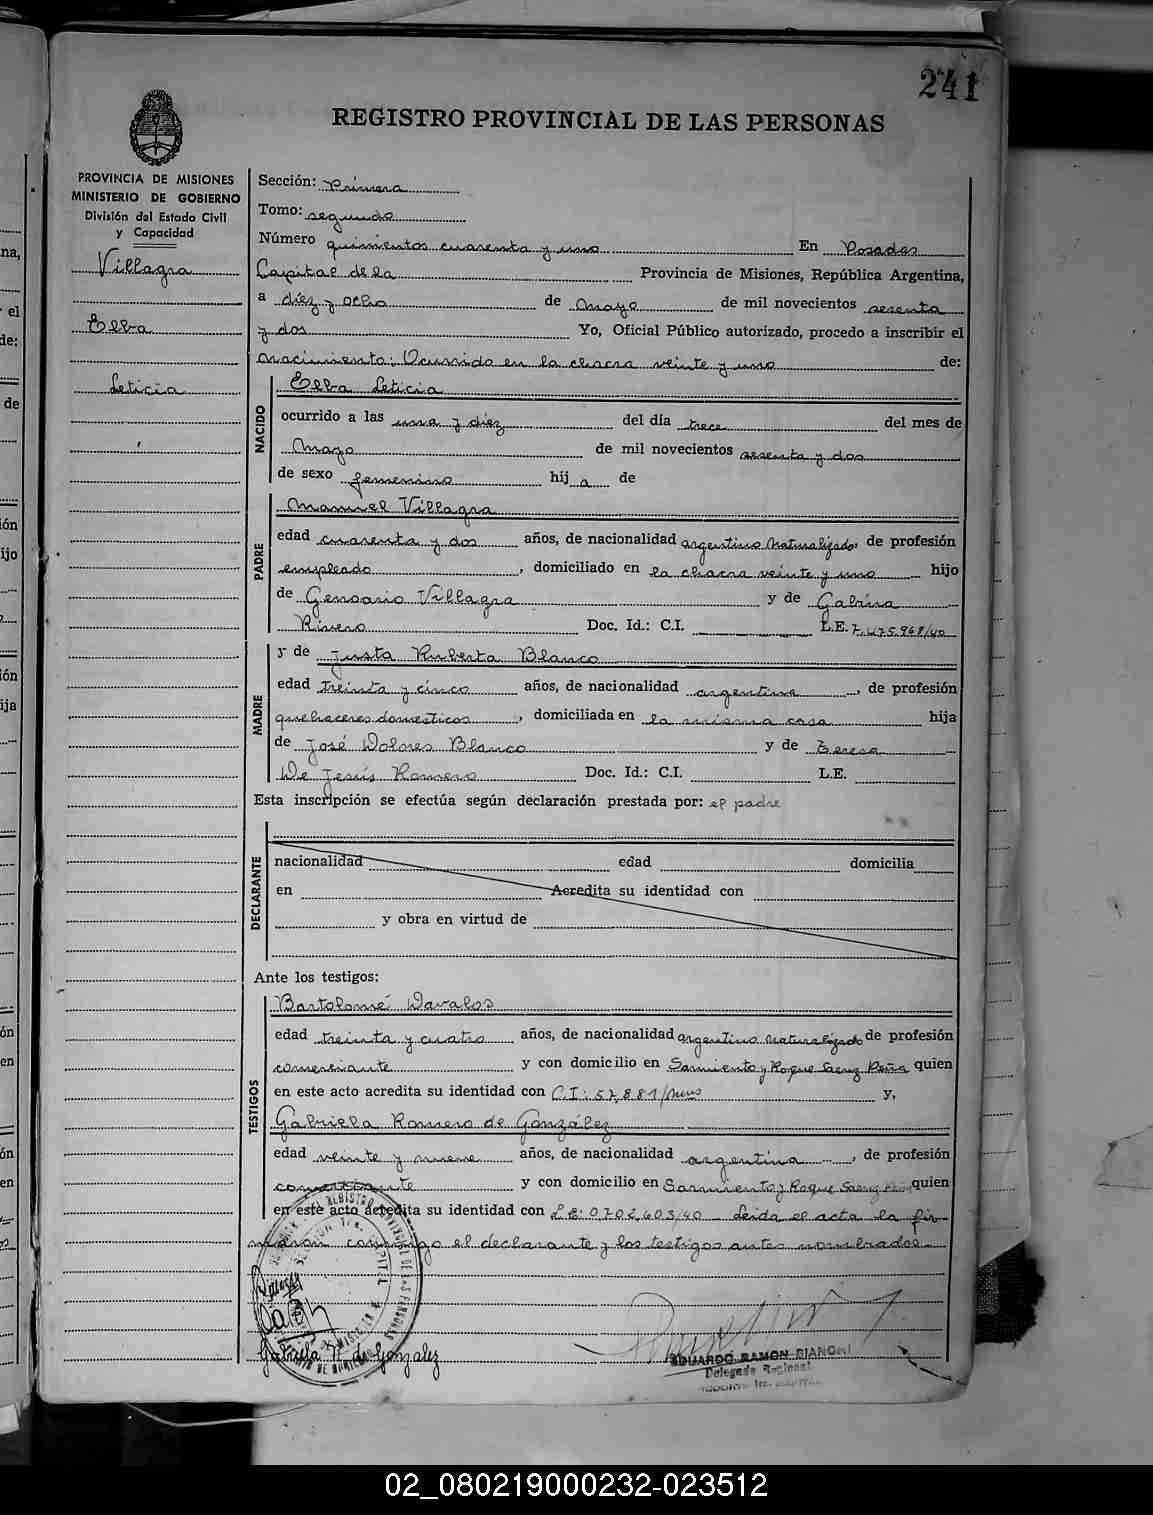 241
REGISTRO PROVINCIAL DE LAS PERSONAS
PROVINCIA DE MISIONES
MINISTERIO DE GOBIERNO
División del Estado Civil
y Capacidad
Villagra
Elba
Leticia
Sección: Primera
Tomo: segundo
Número quinientos cuarenta y uno En Posadas
Capital de la Provincia de Misiones, República Argentina,
a diez y ocho de Mayo de mil novecientos sesenta
y dos Yo, Oficial Público autorizado, procedo a inscribir el
nacimiento: Ocurrido en la chacra veinte y uno de:
NACIDO
Elba Leticia
ocurrido a las una y diez del día trece del mes de
Mayo de mil novecientos sesenta y dos
de sexo femenino hij a de
PADRE
Manuel Villagra
edad cuarenta y dos años, de nacionalidad argentino naturalizado, de profesión
empleado, domiciliado en la chacra veinte y uno hijo
de Genoario Villagra y de Gabina
Rivero Doc. Id.: C.I. L.E. 7.475.968/40
MADRE
y de Justa Ruberta Blanco
edad treinta y cinco años, de nacionalidad argentina, de profesión
quehaceres domesticos, domiciliada en la misma casa hija
de José Dolores Blanco y de Teresa
De Jesús Romero Doc. Id.: C.I. L.E.
Esta inscripción se efectúa según declaración prestada por: el padre
DECLARANTE
nacionalidad edad domicilia
en Acredita su identidad con
y obra en virtud de
Ante los testigos:
TESTIGOS
Bartolomé Davalos
edad treinta y cuatro años, de nacionalidad argentino naturalizado de profesión
comerciante y con domicilio en Sarmiento y Roque Saenz Peña quien
en este acto acredita su identidad con C.I: 57.881/Mnes y,
Gabriela Romero de González
edad veinte y nueve años, de nacionalidad argentina, de profesión
comerciante y con domicilio en Sarmiento y Roque Saenz Peña quien
en este acto acredita su identidad con L.E: 0.702.603/40 Leida el acta la fir
maron conmigo el declarante y los testigos antes nombrados
Gabriela R. de Gonzalez
EDUARDO RAMON BIANCHI
Delegado Regional
02_080219000232-023512